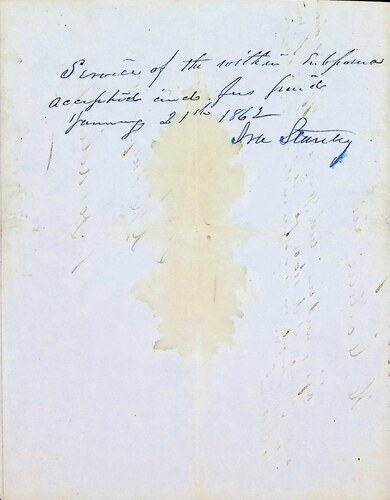 Service of the within Subpoena
accepted and fees paid
January 21th 1862
Ira Stanley